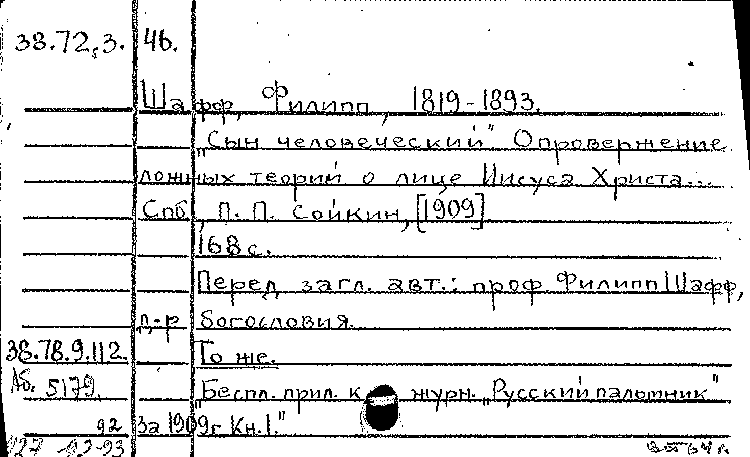 38.72.3. 46.
Шафф, Филипп, 1819-1893.
"Сын человеческий" Опровержение
ложных теорий о лице Иисуса Христа...
Спб, П. П. Сойкин, [1909]
168 с.
Перед загл. авт.: проф. Филипп Шафф,
д-р богословия.
38.78.9.112. То же.
Аб. 5179. "Беспл. прил. к журн. "Русский паломник"
92 за 1909г. Кн. 1."